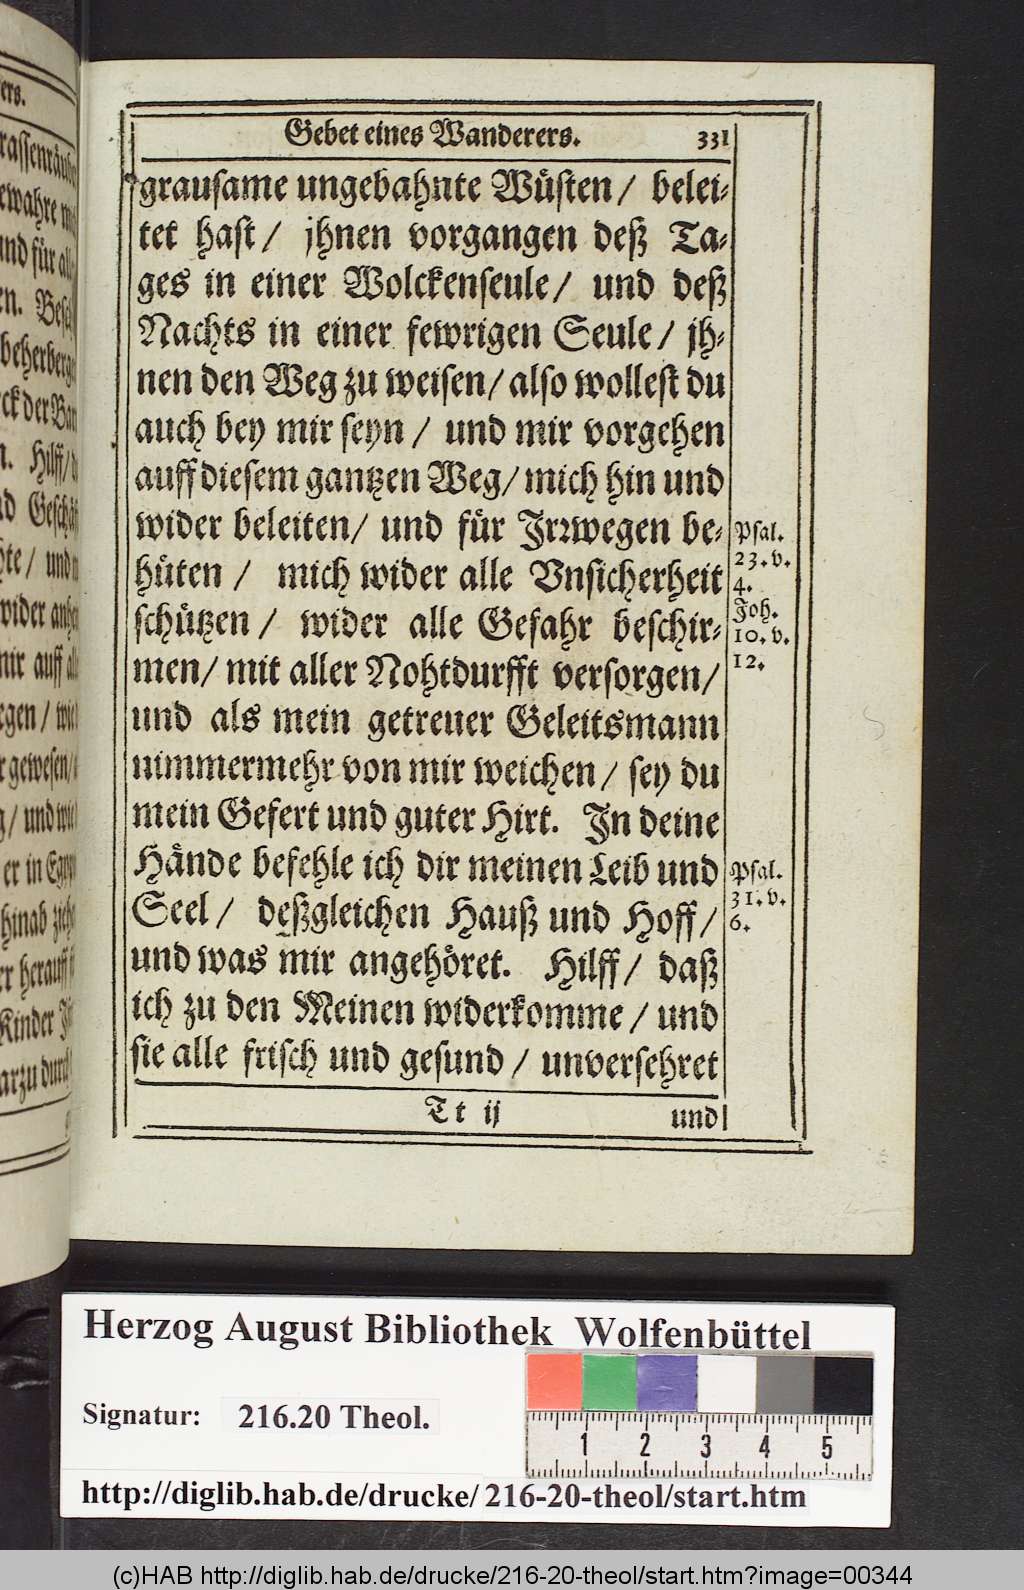 Gebet eines Wanderers. 331
grausame ungebahnte Wüsten / belei-
tet hast / jhnen vorgangen deß Ta-
ges in einer Wolckenseule / und deß
Nachts in einer fewrigen Seule / jh-
nen den Weg zu weisen / also wollest du
auch bey mir seyn / und mir vorgehen
auff diesem gantzen Weg / mich hin und
wider beleiten / und für Jrrwegen be-
hüten / mich wider alle Vnsicherheit
schützen / wider alle Gefahr beschir-
men / mit aller Nohtdurfft versorgen /
und als mein getreuer Geleitsmann
nimmermehr von mir weichen / sey du
mein Gefert und guter Hirt. Jn deine
Hände befehle ich dir meinen Leib und
Seel / deßgleichen Hauß und Hoff /
und was mir angehöret. Hilff / daß
ich zu den Meinen widerkomme / und
sie alle frisch und gesund / unversehret
Tt ij und
Psal.
23. v.
4.
Joh.
10. v.
12.
Psal.
31. v.
6.
ers.
rassenräube
ewahre
und für all
en. Bese
beherberge
ck der Bar
n. Hilff /
nd Geschä
hte / und
wider anhe
mir auff al
rgen / wie
r gewesen /
g / und wie
er in Egyp
hinab zieh
er herauff
Kinder J
arzu durch
Herzog August Bibliothek Wolfenbüttel
Signatur: 216.20 Theol.
1 2 3 4 5
http://diglib.hab.de/drucke/216-20-theol/start.htm
(c)HAB http://diglib.hab.de/drucke/216-20-theol/start.htm?image=00344